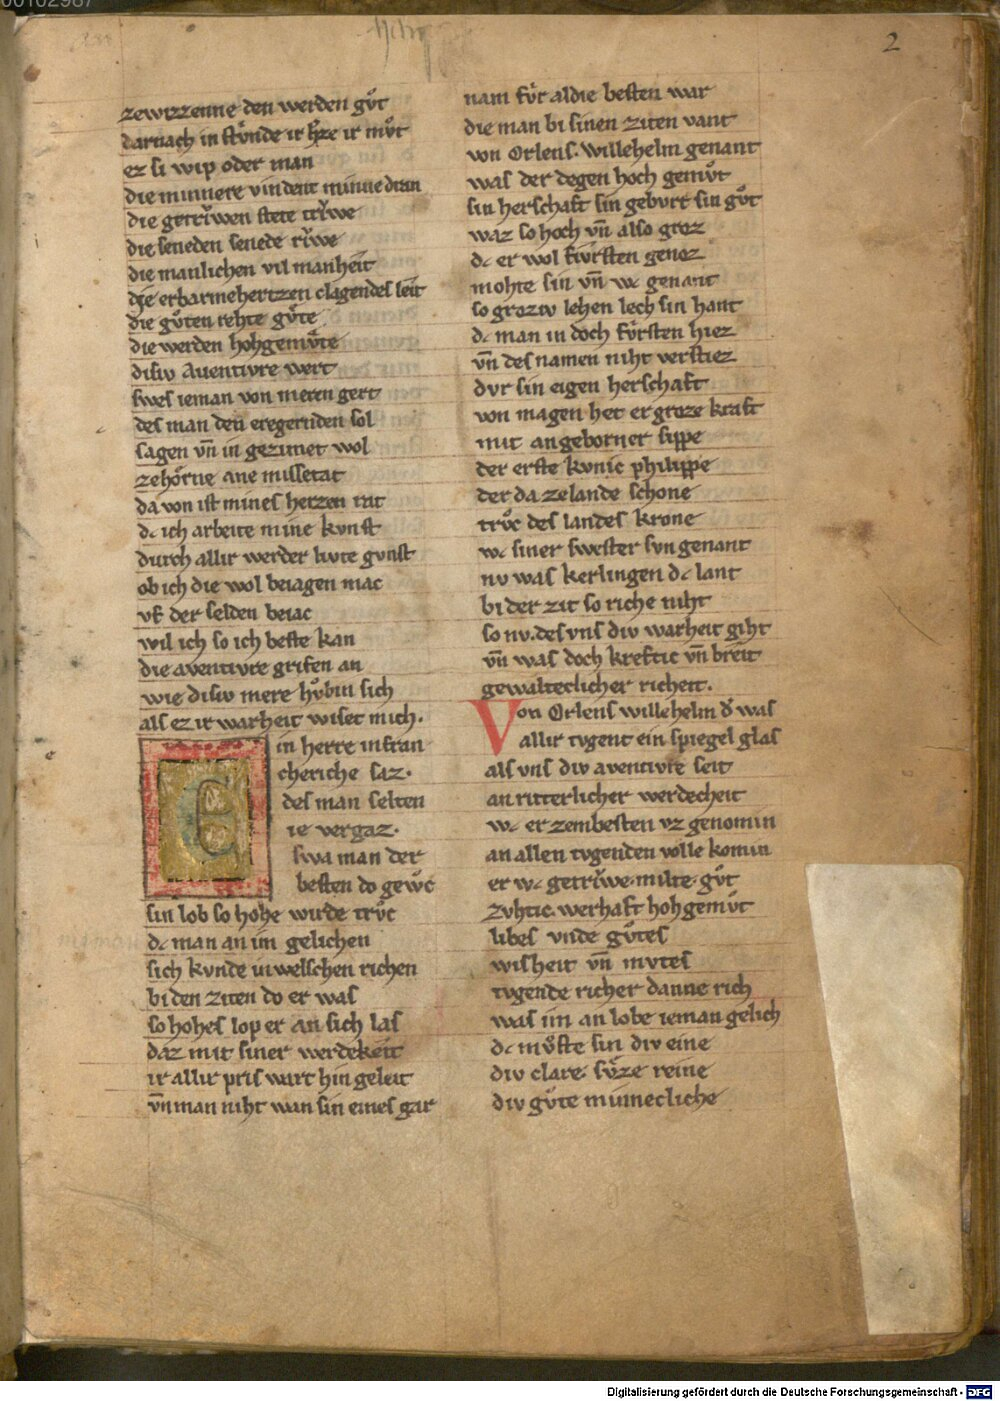 2
zewizzenne den werden guͦt
darnach in stuͦnde ir h̾ze ir muͦt
ez si wip oder man
die minnere vindent minne dran
die getrv̾wen stete trv̾we
die seneden senede rv̾we
die manlichen vil manheit
die erbarmehertzen clagendes leit
die guͦten rehte guͦte
die werden hohgemuͦte
disiv Auentivre wert
swes ieman von meren gert
des man den eregernden sol
sagen vn̄ in gezimet wol
zehoͤrne ane missetat
da von ist mines herzen rat
dc ich arbeite mine kvnst
durch allir werder livte gvnst
ob ich die wol beiagen mac
vf der selden beiac
wil ich so ich beste kan
die aventivre grifen an
wie disiv mere hvͦbin sich
als ez ir warheit wiset mich.
E in herre infran
cheriche saz.
des man selten
ie vergaz.
swa man der
besten do gewuͦc
sin lob so hohe wirde truͦc
dc man an im gelichen
sich kvnde in welschen richen
bi den ziten do er was
so hohes lop er an sich las
daz mit siner werdekeit
ir allir pris wart hin geleit
vn̄ man niht wan sin eines gar
nam fvͤr aldie besten war
die man bi sinen ziten vant
von Orlens. willehelm genant
was der degen hoch gemuͦt
sin herschaft sin geburt sin guͦt
waz so hoch vn̄ also groz
dc er wol fiv̾rsten genoz
mohte sin vn̄ wc genant
so groziv lehen lech sin hant
dc man in doch fv̾rsten hiez
vn̄ des namen niht verstiez
dvr sin eigen herschaft
von magen het er groze kraft
mit angeborner sippe
der erste kvnic philippe
der da zelande schone
truͦc des landes krone
wc siner swester svn genant
nv was kerlingen dc lant
bi der zit so riche niht
so nv. des vns div warheit giht
vn̄ was doch kreftic vn̄ breit
gewalteclicher richeit.
Von Orlens willehelm d̾ was
allir tvgent ein spiegel glas
als vns div aventivre seit
an ritterlicher werdecheit
wc er zembesten vz genomin
an allen tvgenden volle komin
er wc getrv̾we. milte. guͦt
zvhtic. werhaft hohgemuͦt
libes vnde guͦtes
wisheit vn̄ mvtes
tvgende richer danne rich
was im an lobe ieman gelich
dc muͦste sin div eine
div clare. suͤze reine
div guͦte minnecliche
Digitalisierung gefördert durch die Deutsche Forschungsgemeinschaft - DFG